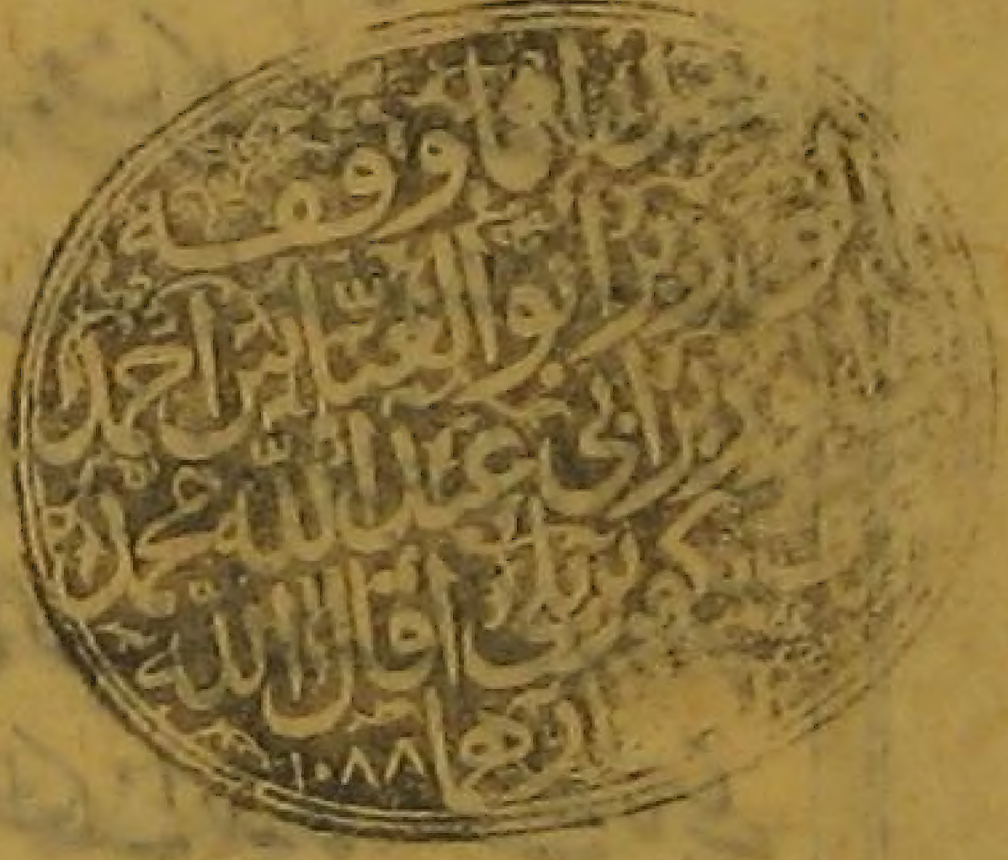 هذا ما وقفه
الوزير ابو العباس احمد
الوزير ابي عبد الله محمد
بكوبريلي اقال الله
عثارهما ١٠٨٨